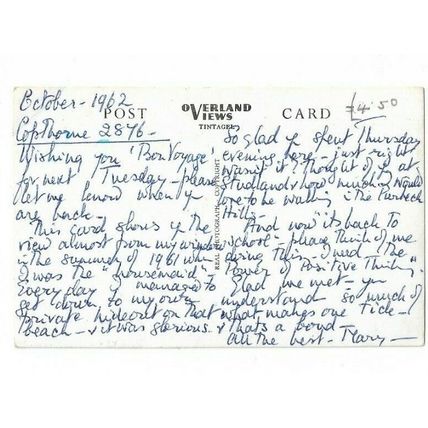 October - 1962
POST
OVERLAND
VIEWS
TINTAGEL
CARD
£4.50
Copthorne 2876 -
Wishing you 'Bon Voyage'
for next Tuesday - please
let me know when y
are back -
This card shows y the
view almost from my window
in the summer of 1961 when
I was the "housemaid"
Every day I managed to
get down to my own
private hideout on that
beach - & it was glorious.
REAL PHOTOGRAPH COPYRIGHT
So glad y spent Thursday
evening here - just right
wasn't it? Thought of y at
Studland & how much I would
love to be walking in the Purbeck
Hills -
And now it's back to
school - please think of me
doing this - I need the
"Power of Positive Thinking"
Glad we met - you
understand so much of
what makes one Tick -
& that's a bond
All the best - Mary -